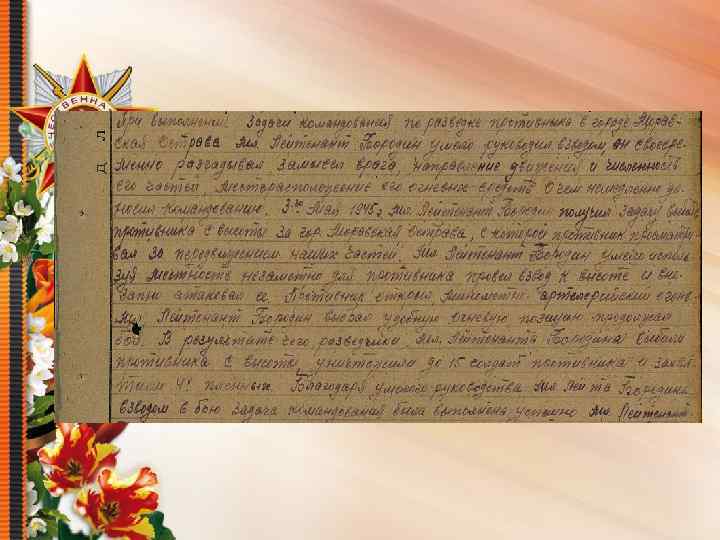 ОТЕЧЕСТВЕННА
Д Л
При выполнении задачи командования по разведке противника в городе Морав-
ская Острава мл. Лейтенант Бородин умело руководил взводом он своевре-
менно разгадывал замысел врага, направление движения и численность
его частей, месторасположение его огневых средств о чем немедленно до-
носил командованию. 3го Мая 1945г мл. Лейтенант Бородин получил задачу выбить
противника с высоты за гор. Моравская Острава, с которой противник просматри-
вал за передвижением наших частей. Мл Лейтенант Бородин умело исполь-
зуя местность незаметно для противника провел взвод к высоте и вне-
запно атаковал ее. Противник открыл минометно-артелерийский огонь
мл Лейтенант Бородин выбрал удобную огневую позицию продолжал
бой. В результате чего разведчики мл. Лейтенанта Бородина выбили
противника с высоты, уничтожили до 15 солдат противника и захва-
тили 4х пленных. Благодаря умелого руководства мл Лей-та Бородина
взводом в бою задача командования была выполнена успешно мл Лейтенант